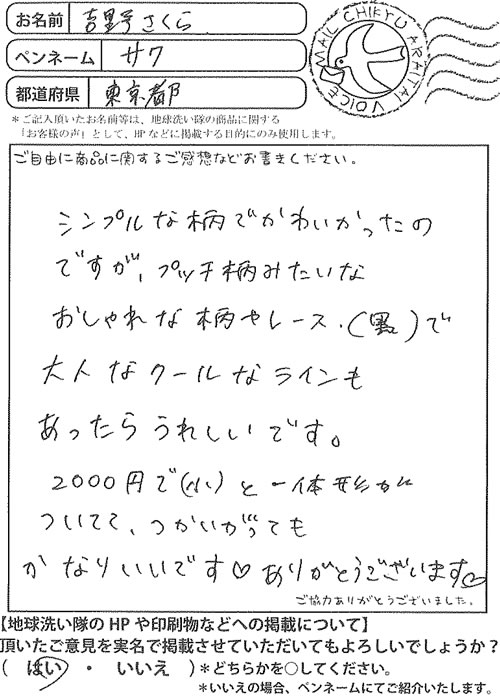 お名前 吉野さくら
ペンネーム サク
都道府県 東京都
MAIL CHIKYU ARAITAI VOICE
＊ご記入頂いたお名前等は、地球洗い隊の商品に関する
「お客様の声」として、HPなどに掲載する目的にのみ使用します。
ご自由に商品に関するご感想などお書きください。
シンプルな柄でかわいかったの
ですが、プッチ柄みたいな
おしゃれな柄やレース・(黒)で
大人なクールなラインも
あったらうれしいです。
2000円で(小)と一体形が
ついてて、つかいがっても
かなりいいです♡ありがとうございます♡
ご協力ありがとうございました。
【地球洗い隊のHPや印刷物などへの掲載について】
頂いたご意見を実名で掲載させていただいてもよろしいでしょうか？
( はい ・ いいえ )＊どちらかを○してください。
＊いいえの場合、ペンネームにてご紹介いたします。